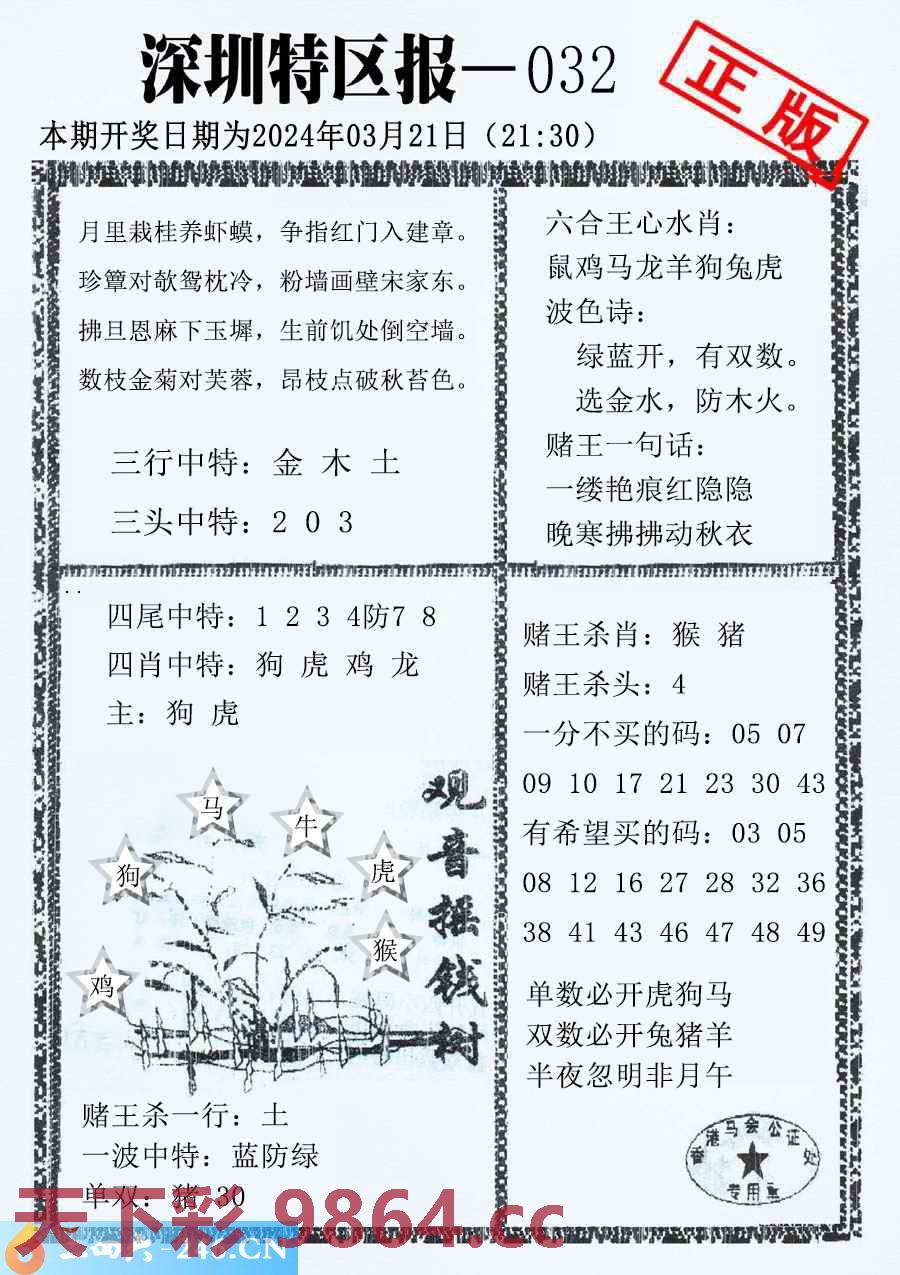 深圳特区报—032
正版
本期开奖日期为2024年03月21日（21:30）
月里栽桂养虾蟆，争指红门入建章。
珍簟对欹鸳枕冷，粉墙画壁宋家东。
拂旦恩麻下玉墀，生前饥处倒空墙。
数枝金菊对芙蓉，昂枝点破秋苔色。
三行中特：金 木 土
三头中特：2 0 3
六合王心水肖：
鼠鸡马龙羊狗兔虎
波色诗：
绿蓝开，有双数。
选金水，防木火。
赌王一句话：
一缕艳痕红隐隐
晚寒拂拂动秋衣
四尾中特：1 2 3 4防7 8
四肖中特：狗 虎 鸡 龙
主：狗 虎
观音摇钱树
马
牛
狗
虎
猴
鸡
赌王杀一行：土
一波中特：蓝防绿
单双：猪 30
赌王杀肖：猴 猪
赌王杀头：4
一分不买的码：05 07
09 10 17 21 23 30 43
有希望买的码：03 05
08 12 16 27 28 32 36
38 41 43 46 47 48 49
单数必开虎狗马
双数必开兔猪羊
半夜忽明非月午
香港马会公证处
专用章
天下彩 9864.cc